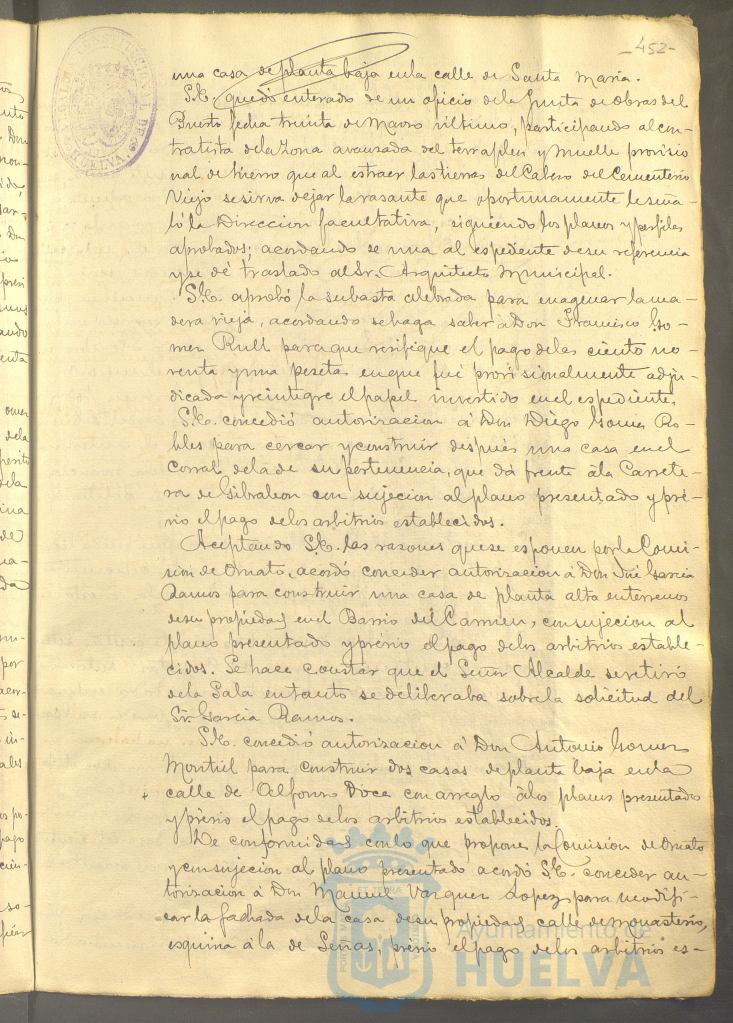 -452-
una casa de planta baja en la calle de Santa Maria.
S.E. quedó enterado de un oficio de la Junta de Obras del
Puerto fecha treinta de Marzo último, participando al con-
tratista de la zona avanzada del terraplen y muelle provisio
nal de hierro que al estraer las tierras del Cabezo del Cementerio
Viejo se sirva dejar la rasante que oportunamente le seña-
ló la Direccion facultativa, siguiendo los planos y perfiles
aprobados; acordando se una al espediente de su referencia
y se dé traslado al Sr. Arquitecto Municipal.
S.E. aprobó la subasta celebrada para enagenar la ma-
dera vieja, acordando se haga saber á Don Francisco Go-
mez Rull para que verifique el pago de las ciento no-
venta y una pesetas en que fué provisionalmente adju-
dicada y reintegre el papel invertido en el espediente.
S.E. concedió autorizacion á Don Diego Gomez Ro-
bles para cercar y construir después una casa en el
corral de la de su pertenencia, que dá frente á la Carrete-
ra de Gibraleon con sujecion al plano presentado y pré-
vio el pago de los arbitrios establecidos.
Aceptando S.E. las razones que se esponen por la Comi-
sion de Ornato, acordó conceder autorizacion á Don José Garcia
Ramos para construir una casa de planta alta en terrenos
de su propiedad en el Barrio del Carmen, con sujecion al
plano presentado y prévio el pago de los arbitrios estable-
cidos. Se hace constar que el Señor Alcalde se retiró
de la Sala en tanto se deliberaba sobre la solicitud del
Sr. Garcia Ramos.
S.E. concedió autorizacion á Don Antonio Gomez
Montiel para construir dos casas de planta baja en la
calle de Alfonso Doce con arreglo á los planos presentados
y prévio el pago de los arbitrios establecidos.
De conformidad con lo que propone la Comision de Ornato
y con sujecion al plano presentado acordó S.E. conceder au-
torizacion á Don Manuel Vazquez Lopez para modifi-
car la fachada de la casa de su propiedad calle de Monasterio,
esquina á la de Señas, previo el pago de los arbitrios es-
Ayuntamiento de
HUELVA